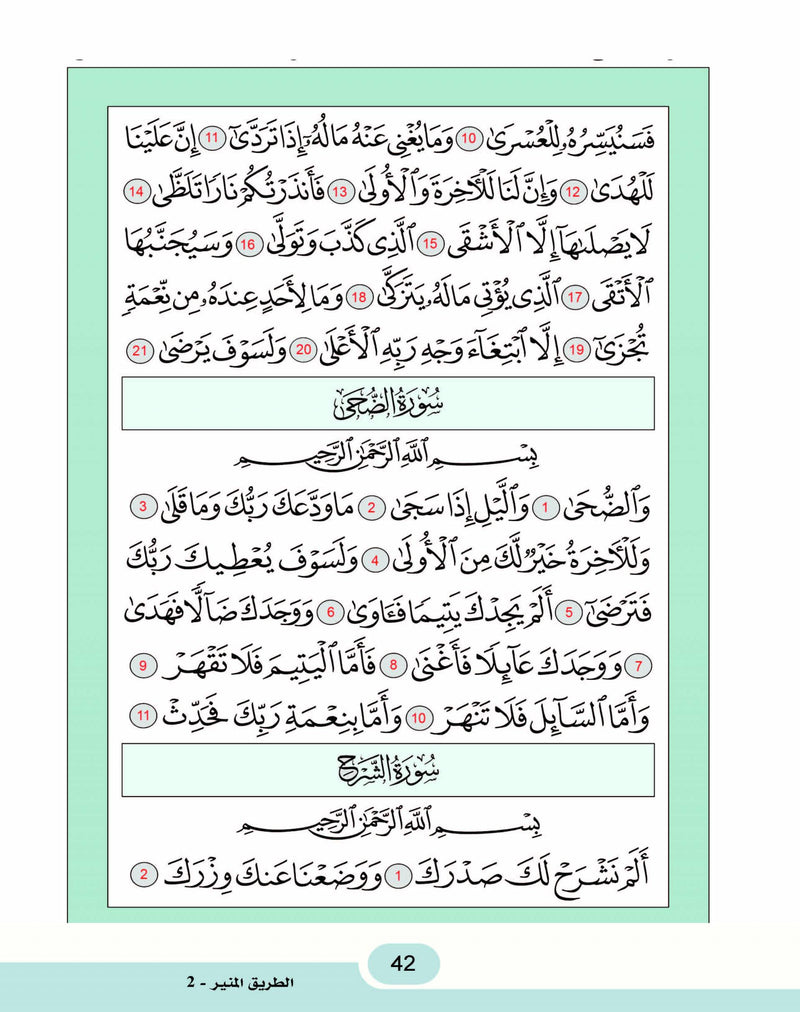 فَسَنُيَسِّرُهُۥ لِلْعُسْرَىٰ 10 وَمَا يُغْنِى عَنْهُ مَالُهُۥٓ إِذَا تَرَدَّىٰٓ 11 إِنَّ عَلَيْنَا
لَلْهُدَىٰ 12 وَإِنَّ لَنَا لَلْءَاخِرَةَ وَٱلْأُولَىٰ 13 فَأَنذَرْتُكُمْ نَارًا تَلَظَّىٰ 14
لَا يَصْلَىٰهَآ إِلَّا ٱلْأَشْقَى 15 ٱلَّذِى كَذَّبَ وَتَوَلَّىٰ 16 وَسَيُجَنَّبُهَا
ٱلْأَتْقَى 17 ٱلَّذِى يُؤْتِى مَالَهُۥ يَتَزَكَّىٰ 18 وَمَا لِأَحَدٍ عِندَهُۥ مِن نِّعْمَةٍ
تُجْزَىٰٓ 19 إِلَّا ٱبْتِغَآءَ وَجْهِ رَبِّهِ ٱلْأَعْلَىٰ 20 وَلَسَوْفَ يَرْضَىٰ 21
سُورَةُ الضُّحَىٰ
بِسْمِ ٱللَّهِ ٱلرَّحْمَٰنِ ٱلرَّحِيمِ
وَٱلضُّحَىٰ 1 وَٱلَّيْلِ إِذَا سَجَىٰ 2 مَا وَدَّعَكَ رَبُّكَ وَمَا قَلَىٰ 3
وَلَلْءَاخِرَةُ خَيْرٌ لَّكَ مِنَ ٱلْأُولَىٰ 4 وَلَسَوْفَ يُعْطِيكَ رَبُّكَ
فَتَرْضَىٰٓ 5 أَلَمْ يَجِدْكَ يَتِيمًا فَـَٔاوَىٰ 6 وَوَجَدَكَ ضَآلًّا فَهَدَىٰ
7 وَوَجَدَكَ عَآئِلًا فَأَغْنَىٰ 8 فَأَمَّا ٱلْيَتِيمَ فَلَا تَقْهَرْ 9
وَأَمَّا ٱلسَّآئِلَ فَلَا تَنْهَرْ 10 وَأَمَّا بِنِعْمَةِ رَبِّكَ فَحَدِّثْ 11
سُورَةُ الشَّرْحِ
بِسْمِ ٱللَّهِ ٱلرَّحْمَٰنِ ٱلرَّحِيمِ
أَلَمْ نَشْرَحْ لَكَ صَدْرَكَ 1 وَوَضَعْنَا عَنكَ وِزْرَكَ 2
42
الطريق المنير - 2